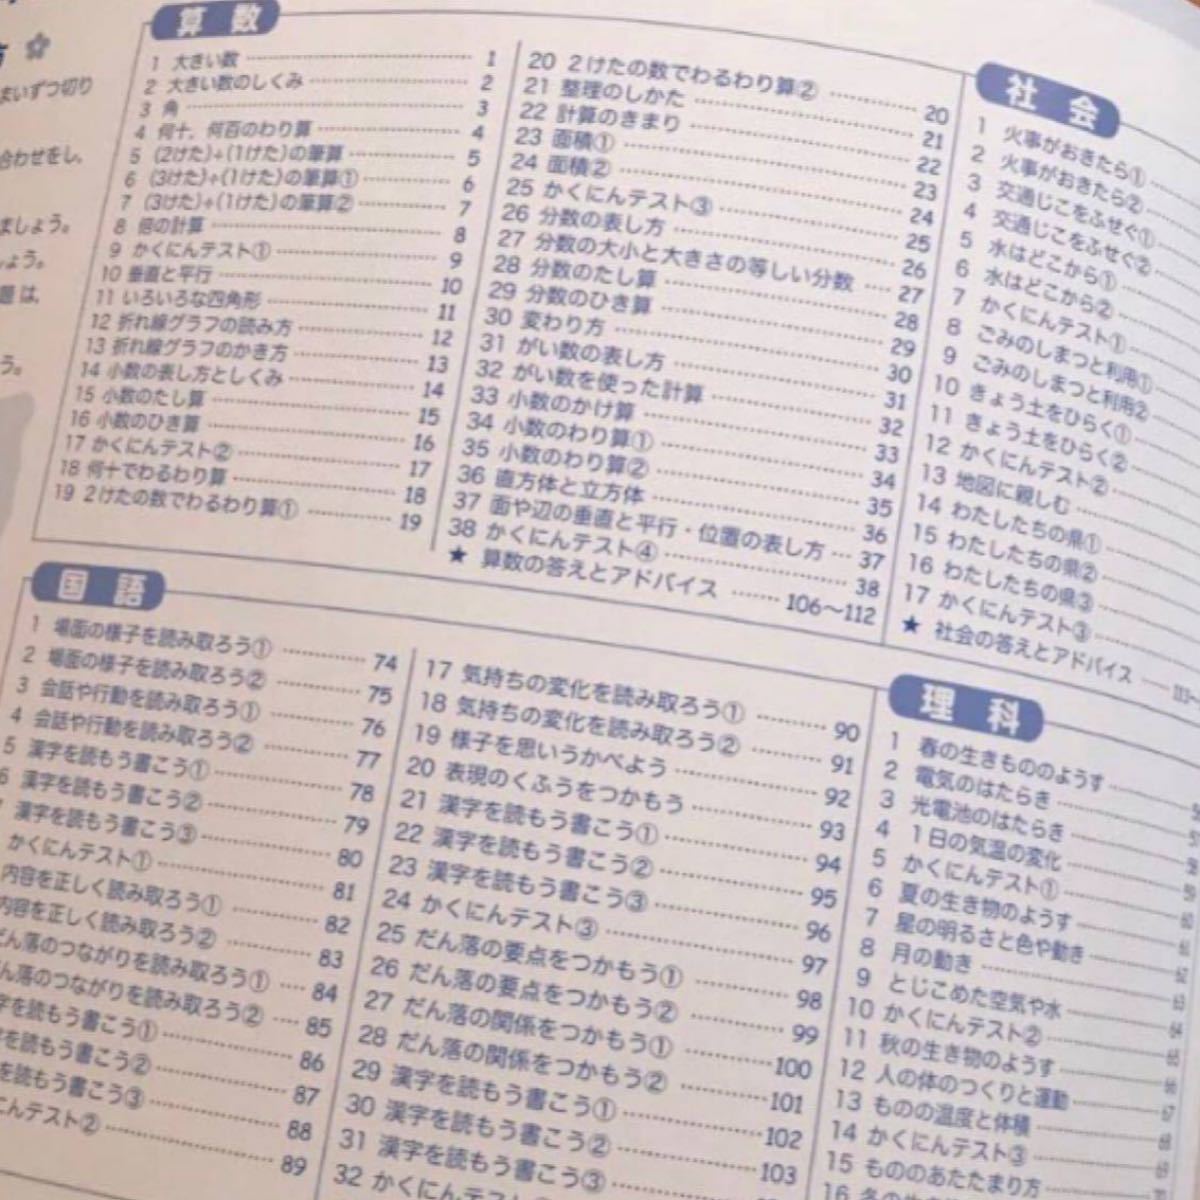 まいずつ切り
合わせをし,
ましょう。
しょう。
題は,
う。
算数
1 大きい数 1
2 大きい数のしくみ 2
3 角 3
4 何十，何百のわり算 4
5 (2けた)÷(1けた)の筆算 5
6 (3けた)÷(1けた)の筆算① 6
7 (3けた)÷(1けた)の筆算② 7
8 倍の計算 8
9 かくにんテスト① 9
10 垂直と平行 10
11 いろいろな四角形 11
12 折れ線グラフの読み方 12
13 折れ線グラフのかき方 13
14 小数の表し方としくみ 14
15 小数のたし算 15
16 小数のひき算 16
17 かくにんテスト② 17
18 何十でわるわり算 18
19 2けたの数でわるわり算① 19
20 2けたの数でわるわり算② 20
21 整理のしかた 21
22 計算のきまり 22
23 面積① 23
24 面積② 24
25 かくにんテスト③ 25
26 分数の表し方 26
27 分数の大小と大きさの等しい分数 27
28 分数のたし算 28
29 分数のひき算 29
30 変わり方 30
31 がい数の表し方 31
32 がい数を使った計算 32
33 小数のかけ算 33
34 小数のわり算① 34
35 小数のわり算② 35
36 直方体と立方体 36
37 面や辺の垂直と平行・位置の表し方 37
38 かくにんテスト④ 38
★ 算数の答えとアドバイス 106〜112
社会
1 火事がおきたら①
2 火事がおきたら②
3 交通じこをふせぐ①
4 交通じこをふせぐ②
5 水はどこから①
6 水はどこから②
7 かくにんテスト①
8 ごみのしまつと利用①
9 ごみのしまつと利用②
10 きょう土をひらく①
11 きょう土をひらく②
12 かくにんテスト②
13 地図に親しむ
14 わたしたちの県①
15 わたしたちの県②
16 わたしたちの県③
17 かくにんテスト③
★ 社会の答えとアドバイス
国語
1 場面の様子を読み取ろう① 74
2 場面の様子を読み取ろう② 75
3 会話や行動を読み取ろう① 76
4 会話や行動を読み取ろう② 77
5 漢字を読もう書こう① 78
6 漢字を読もう書こう② 79
漢字を読もう書こう③ 80
かくにんテスト① 81
内容を正しく読み取ろう① 82
内容を正しく読み取ろう② 83
だん落のつながりを読み取ろう① 84
だん落のつながりを読み取ろう② 85
字を読もう書こう① 86
を読もう書こう② 87
を読もう書こう③ 88
にんテスト② 89
17 気持ちの変化を読み取ろう① 90
18 気持ちの変化を読み取ろう② 91
19 様子を思いうかべよう 92
20 表現のくふうをつかもう 93
21 漢字を読もう書こう① 94
22 漢字を読もう書こう② 95
23 漢字を読もう書こう③ 96
24 かくにんテスト③ 97
25 だん落の要点をつかもう① 98
26 だん落の要点をつかもう② 99
27 だん落の関係をつかもう① 100
28 だん落の関係をつかもう② 101
29 漢字を読もう書こう① 102
30 漢字を読もう書こう② 103
31 漢字を読もう書こう③
32 かくにんテスト
理科
1 春の生きもののようす
2 電気のはたらき
3 光電池のはたらき
4 1日の気温の変化
5 かくにんテスト① 60
6 夏の生き物のようす 61
7 星の明るさと色や動き 62
8 月の動き 63
9 とじこめた空気や水 64
10 かくにんテスト② 65
11 秋の生き物のようす 66
12 人の体のつくりと運動 67
13 ものの温度と体積 68
14 かくにんテスト③ 69
15 もののあたたまり方
16 冬の生き物